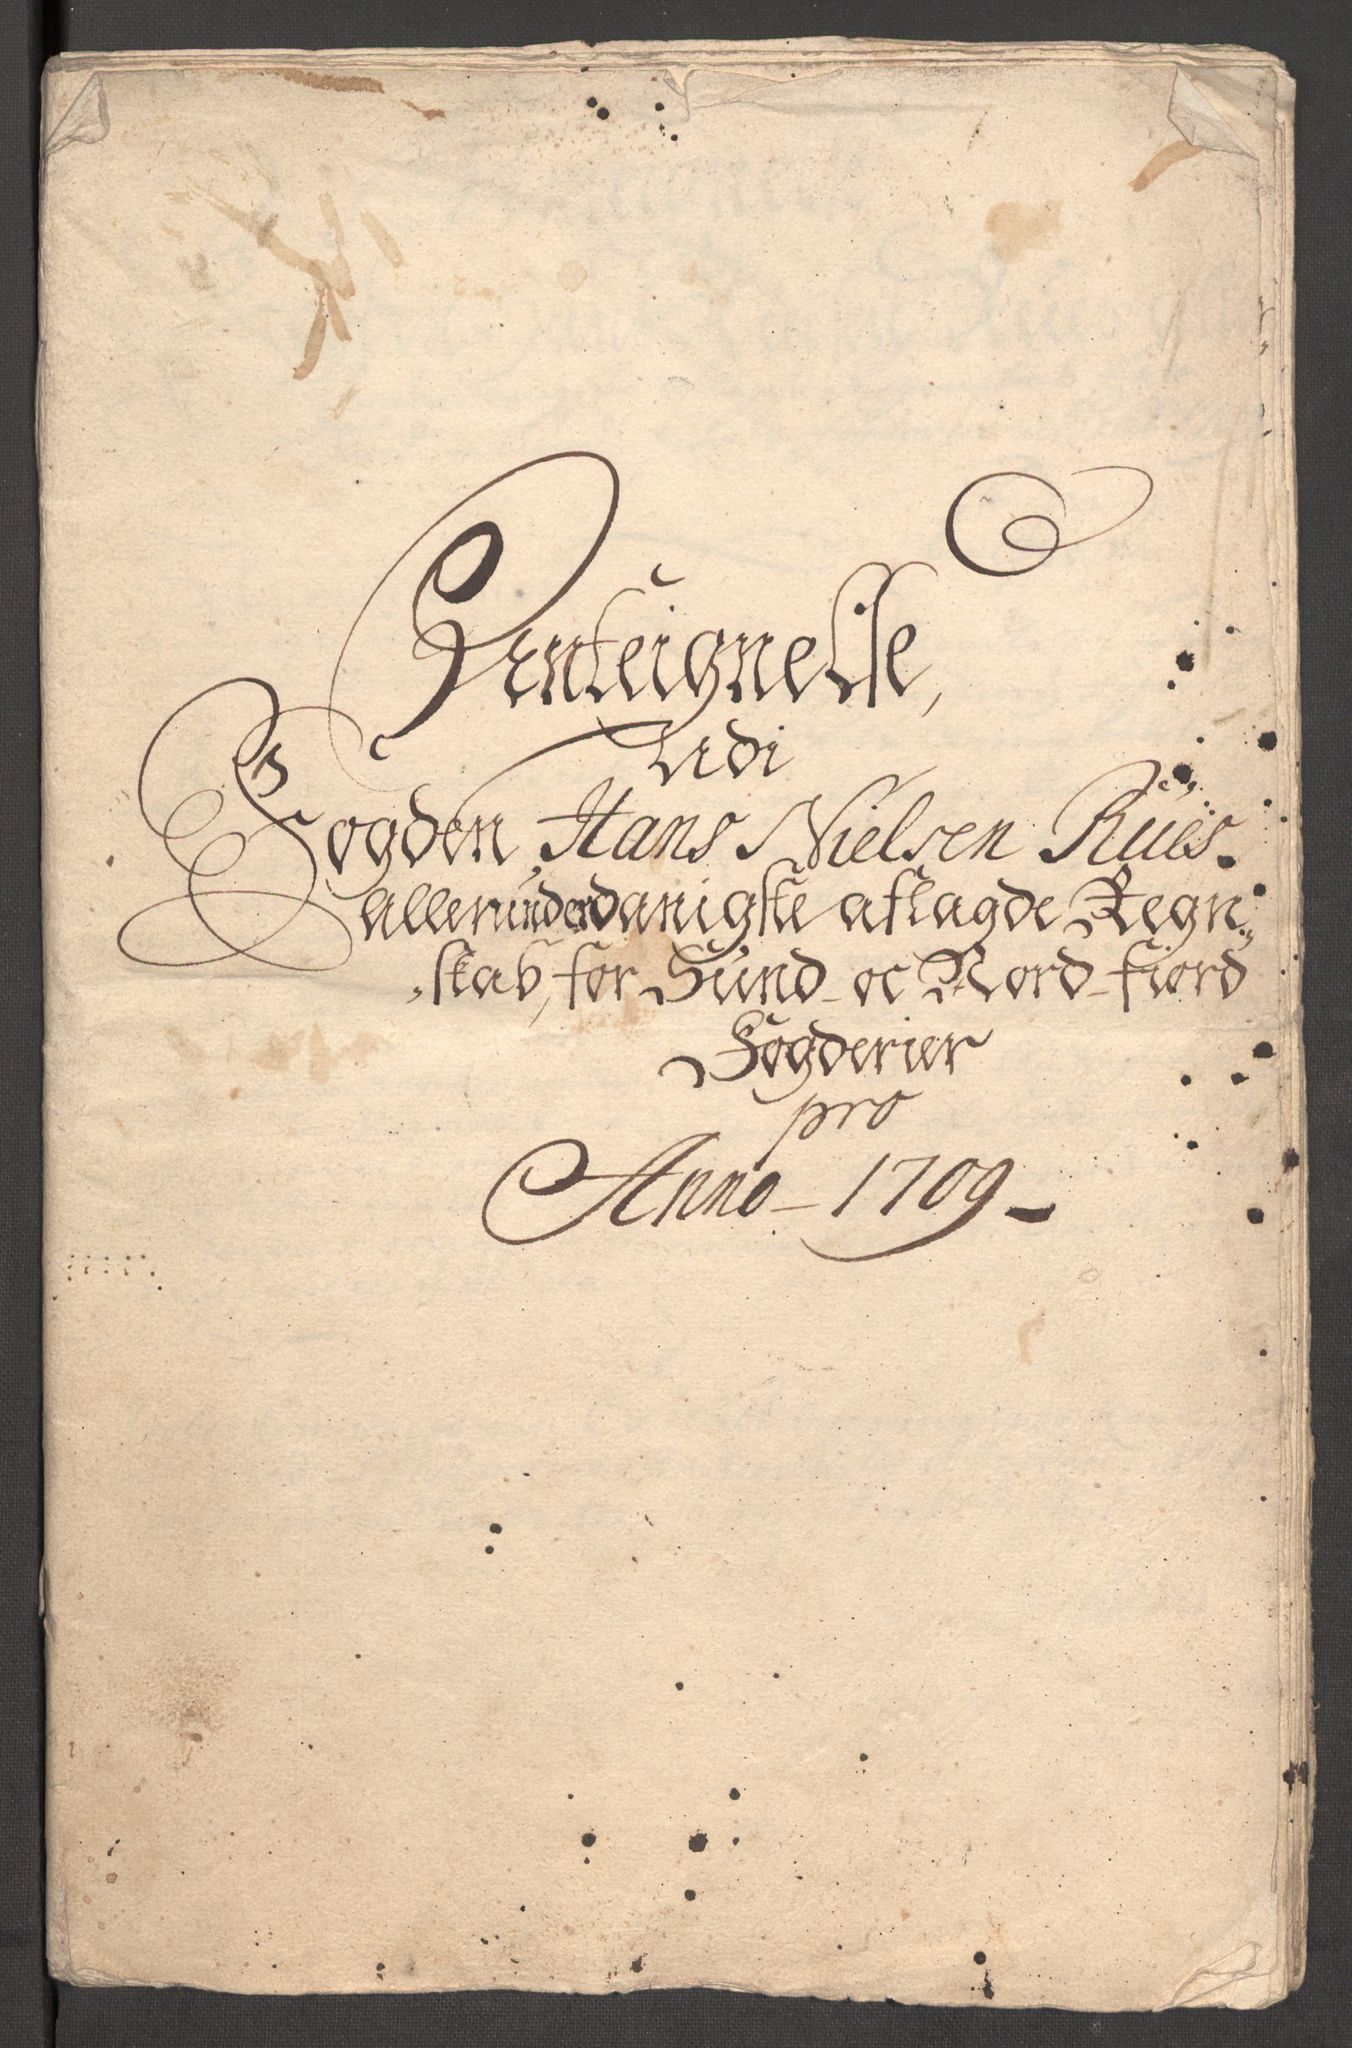 Genteignelse,
Udi
Fogden, Hans Nielsen Rües.
allerunderdanigste aflagde Regn„
„skab, for Sund- oc Nord-fiord
Fogderier
pro
Anno - 1709 -